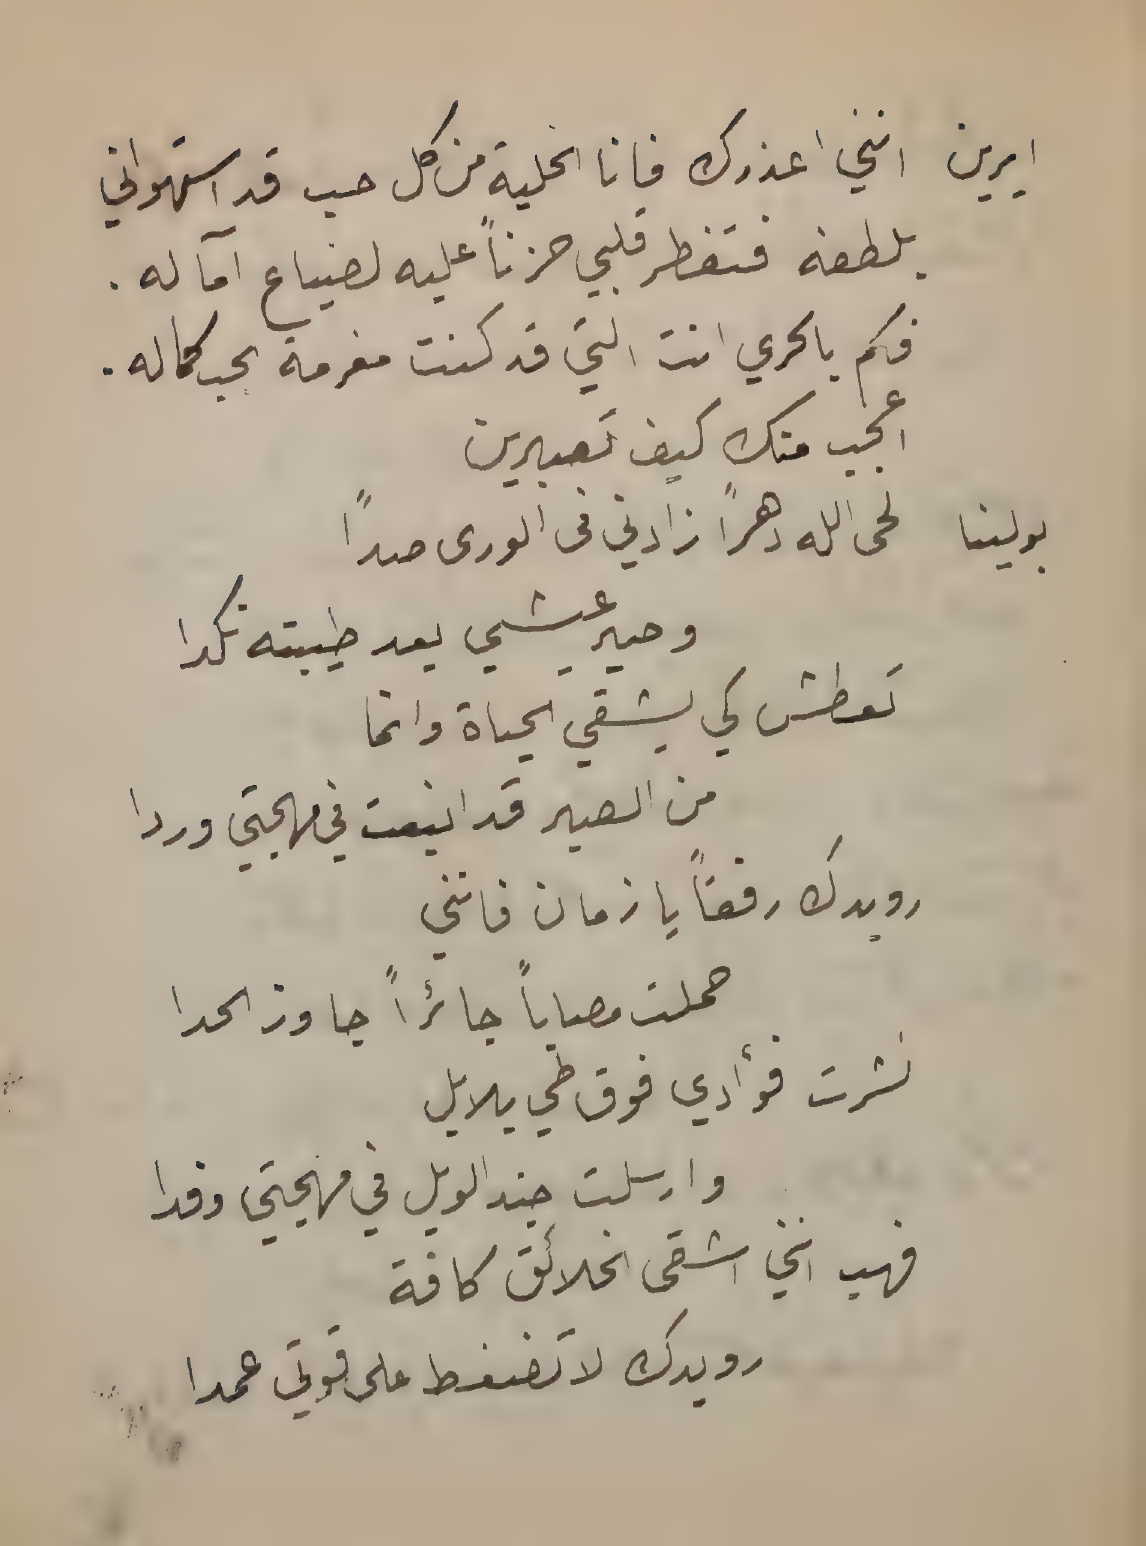 ايرين انني اعذرك فانا الخلية من كل حب قد استهواني
بلطفه فتفطر قلبي حزناً عليه لضياع آماله .
فكم بالحري انت التي قد كنت مغرمة بحب كماله .
اعجب منك كيف تصبرين
بولينا لحى الله دهراً زادني فى الورى صداً
وصير عيشي بعد طيبته نكدا
تعطش كي يشقي الحياة وانما
من الصبر قد اينعت في مهجتي وردا
رويدك رفقاً يا زمان فانني
حملت مصاباً جائراً جاوز الحدا
نشرت فوأدي فوق طي بلابل
وارسلت جند الويل في مهجتي وفدا
فهب انني اشقى الخلائق كافة
رويدك لا تضغط على قوتي عمدا